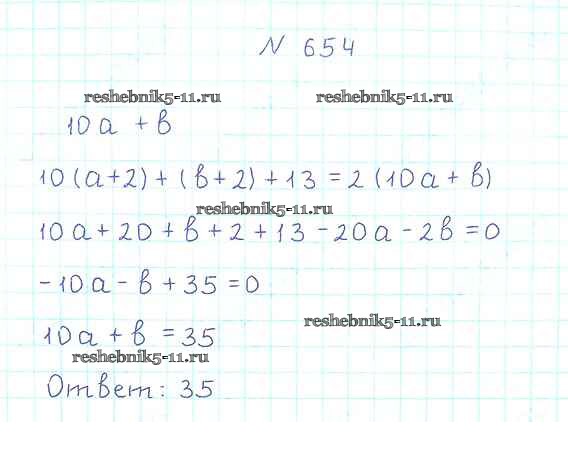 N 654
reshebnik5-11.ru reshebnik5-11.ru
10a + b
10(a+2) + (b+2) + 13 = 2 (10a + b)
reshebnik5-11.ru
10a + 20 + b + 2 + 13 - 20a - 2b = 0
-10a - b + 35 = 0
reshebnik5-11.ru
10a + b = 35
reshebnik5-11.ru
Ответ: 35